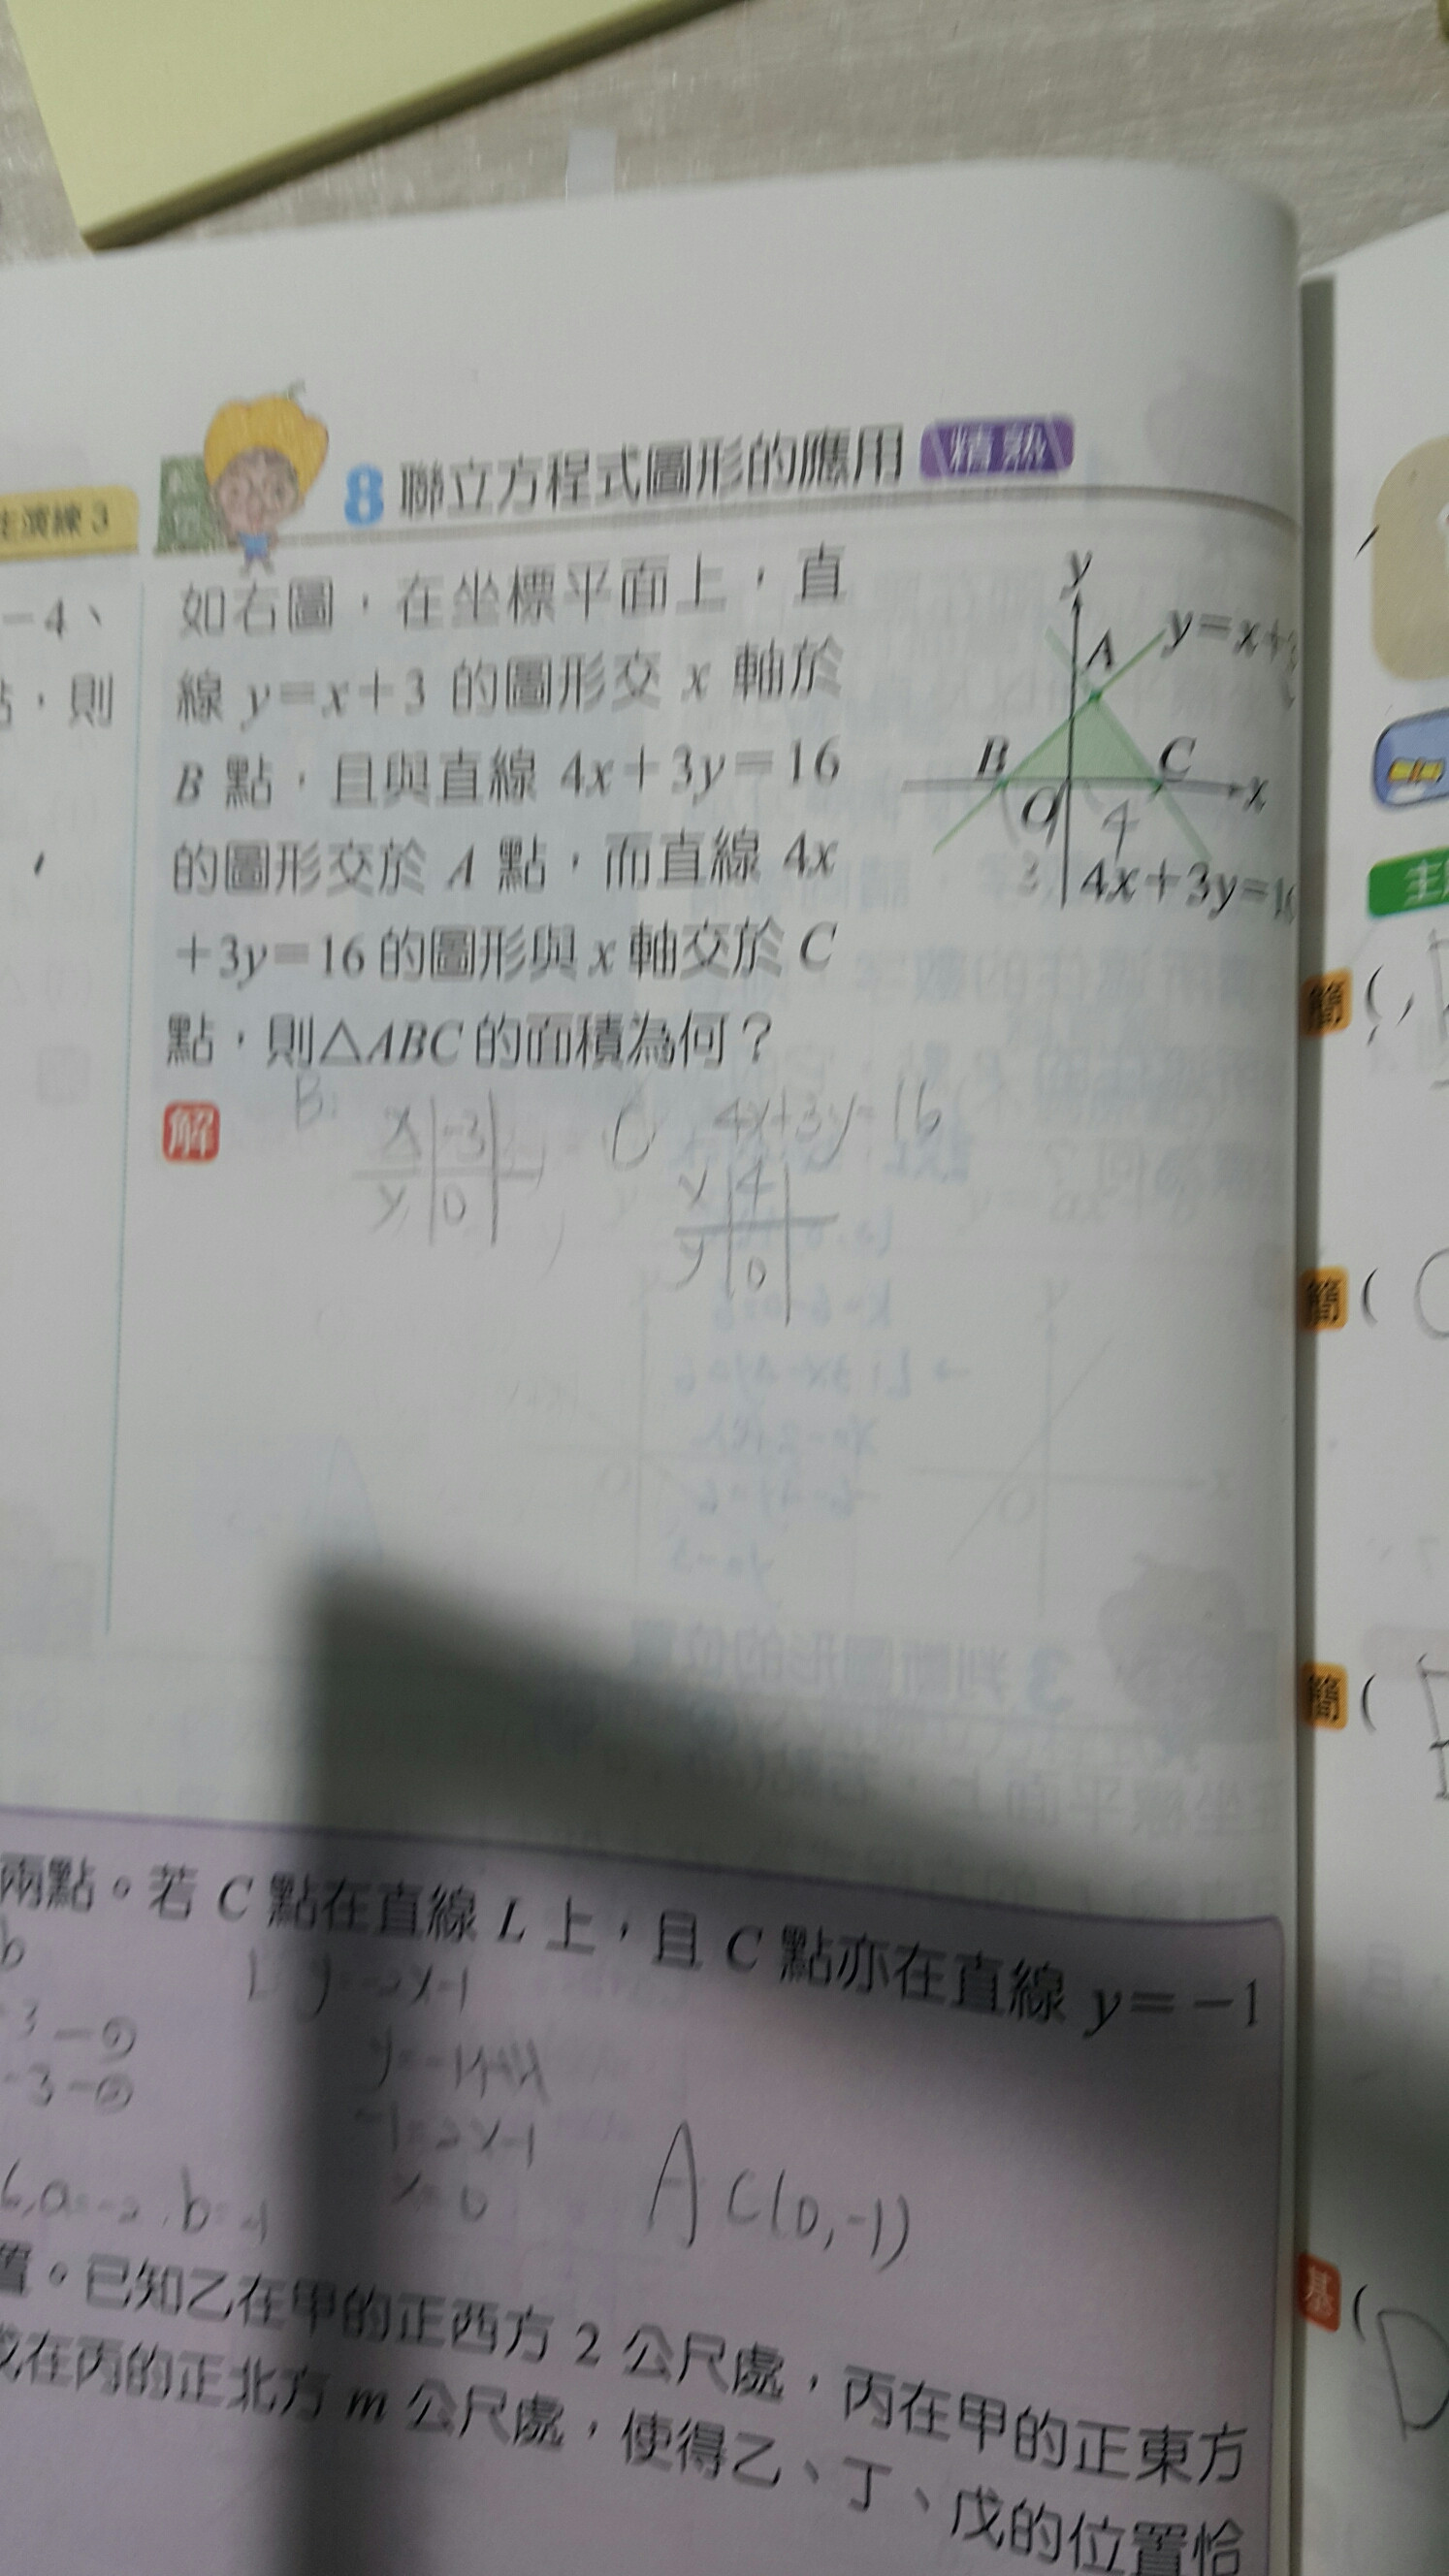 8 聯立方程式圖形的應用 精熟
主演練3
－4、
，則
如右圖，在坐標平面上，直
線 y＝x＋3 的圖形交 x 軸於
B 點，且與直線 4x＋3y＝16
的圖形交於 A 點，而直線 4x
＋3y＝16 的圖形與 x 軸交於 C
點，則△ABC 的面積為何？
y
A
y＝x＋3
B
C
O
x
4
3
4x＋3y＝16
解
B:
x -3
y 0
C 4x+3y=16
x 4
y 0
兩點。若 C 點在直線 L 上，且 C 點亦在直線 y＝－1
b
3－
-3－②
y=-1
-1=2x-1
x=0
a=-2, b=-1
A C(0,-1)
置。已知乙在甲的正西方 2 公尺處，丙在甲的正東方
戊在丙的正北方 m 公尺處，使得乙、丁、戊的位置恰
主
簡 (
簡 (
簡 (
基 (
D